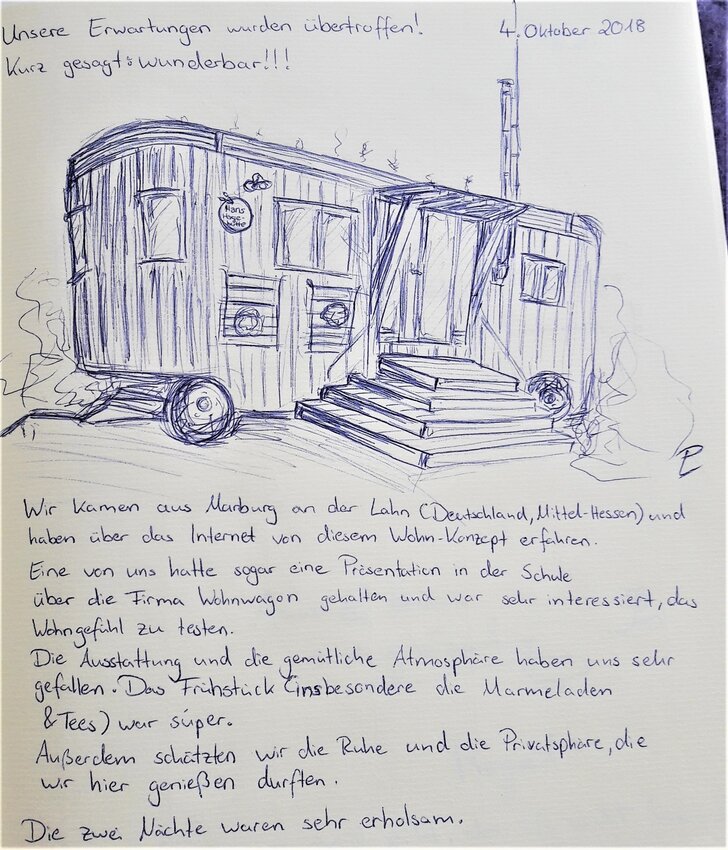 Unsere Erwartungen wurden übertroffen!
4. Oktober 2018
Kurz gesagt: wunderbar!!!
Hans
Hage-
butte
Wir kamen aus Marburg an der Lahn (Deutschland, Mittel-Hessen) und
haben über das Internet von diesem Wohn-Konzept erfahren.
Eine von uns hatte sogar eine Präsentation in der Schule
über die Firma Wohnwagon gehalten und war sehr interessiert, das
Wohngefühl zu testen.
Die Ausstattung und die gemütliche Atmosphäre haben uns sehr
gefallen. Das Frühstück (insbesondere die Marmeladen
& Tees) war super.
Außerdem schätzten wir die Ruhe und die Privatsphäre, die
wir hier genießen durften.
Die zwei Nächte waren sehr erholsam.